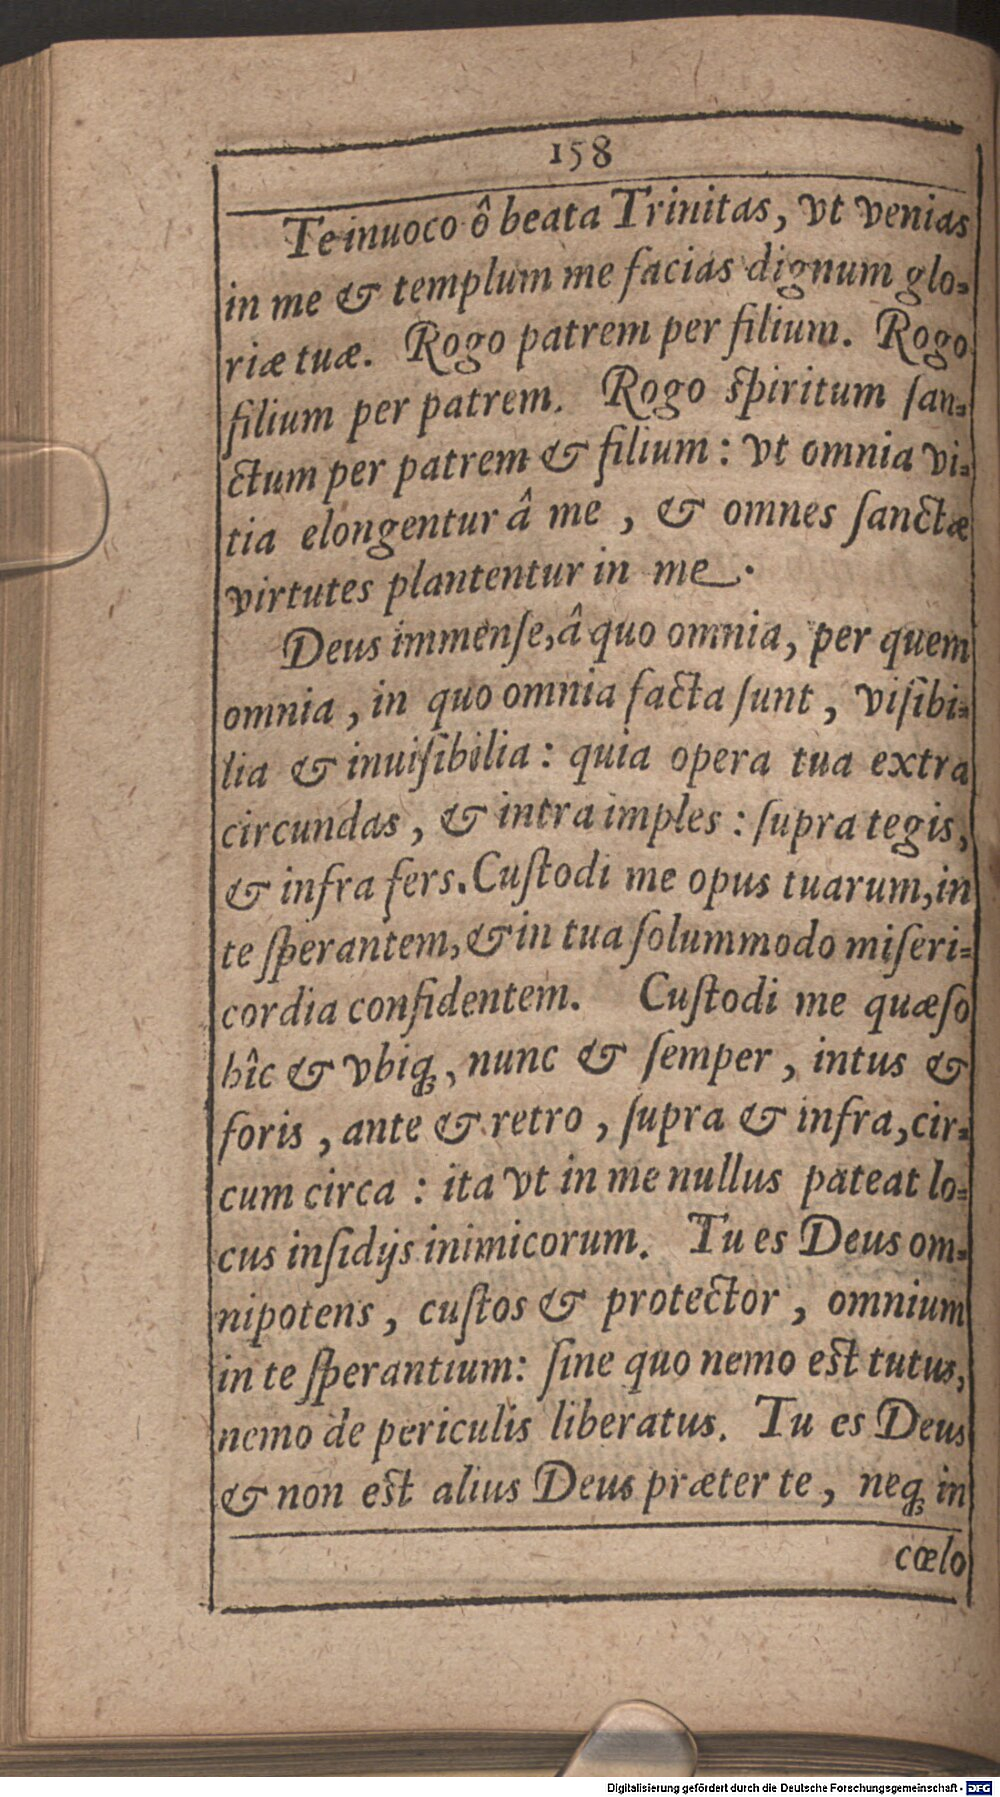 158
Te inuoco ô beata Trinitas, vt venias
in me & templum me facias dignum glo-
riæ tuæ. Rogo patrem per filium. Rogo
filium per patrem. Rogo spiritum ſan-
ctum per patrem & filium : vt omnia vi-
tia elongentur â me , & omnes ſanctæ
virtutes plantentur in me.
Deus immenſe, â quo omnia, per quem
omnia , in quo omnia facta ſunt , viſibi-
lia & inuiſibilia : quia opera tua extra
circundas , & intra imples : ſupra tegis,
& infra fers. Cuſtodi me opus tuarum, in
te ſperantem, & in tua ſolummodo miſeri-
cordia confidentem. Cuſtodi me quæſo
hîc & vbiq;, nunc & ſemper , intus &
foris , ante & retro , ſupra & infra, cir-
cum circa : ita vt in me nullus pateat lo-
cus inſidijs inimicorum. Tu es Deus om-
nipotens , cuſtos & protector , omnium
in te ſperantium: ſine quo nemo est tutus,
nemo de periculis liberatus. Tu es Deus
& non est alius Deus præter te , neq; in
cœlo
Digitalisierung gefördert durch die Deutsche Forschungsgemeinschaft - DFG